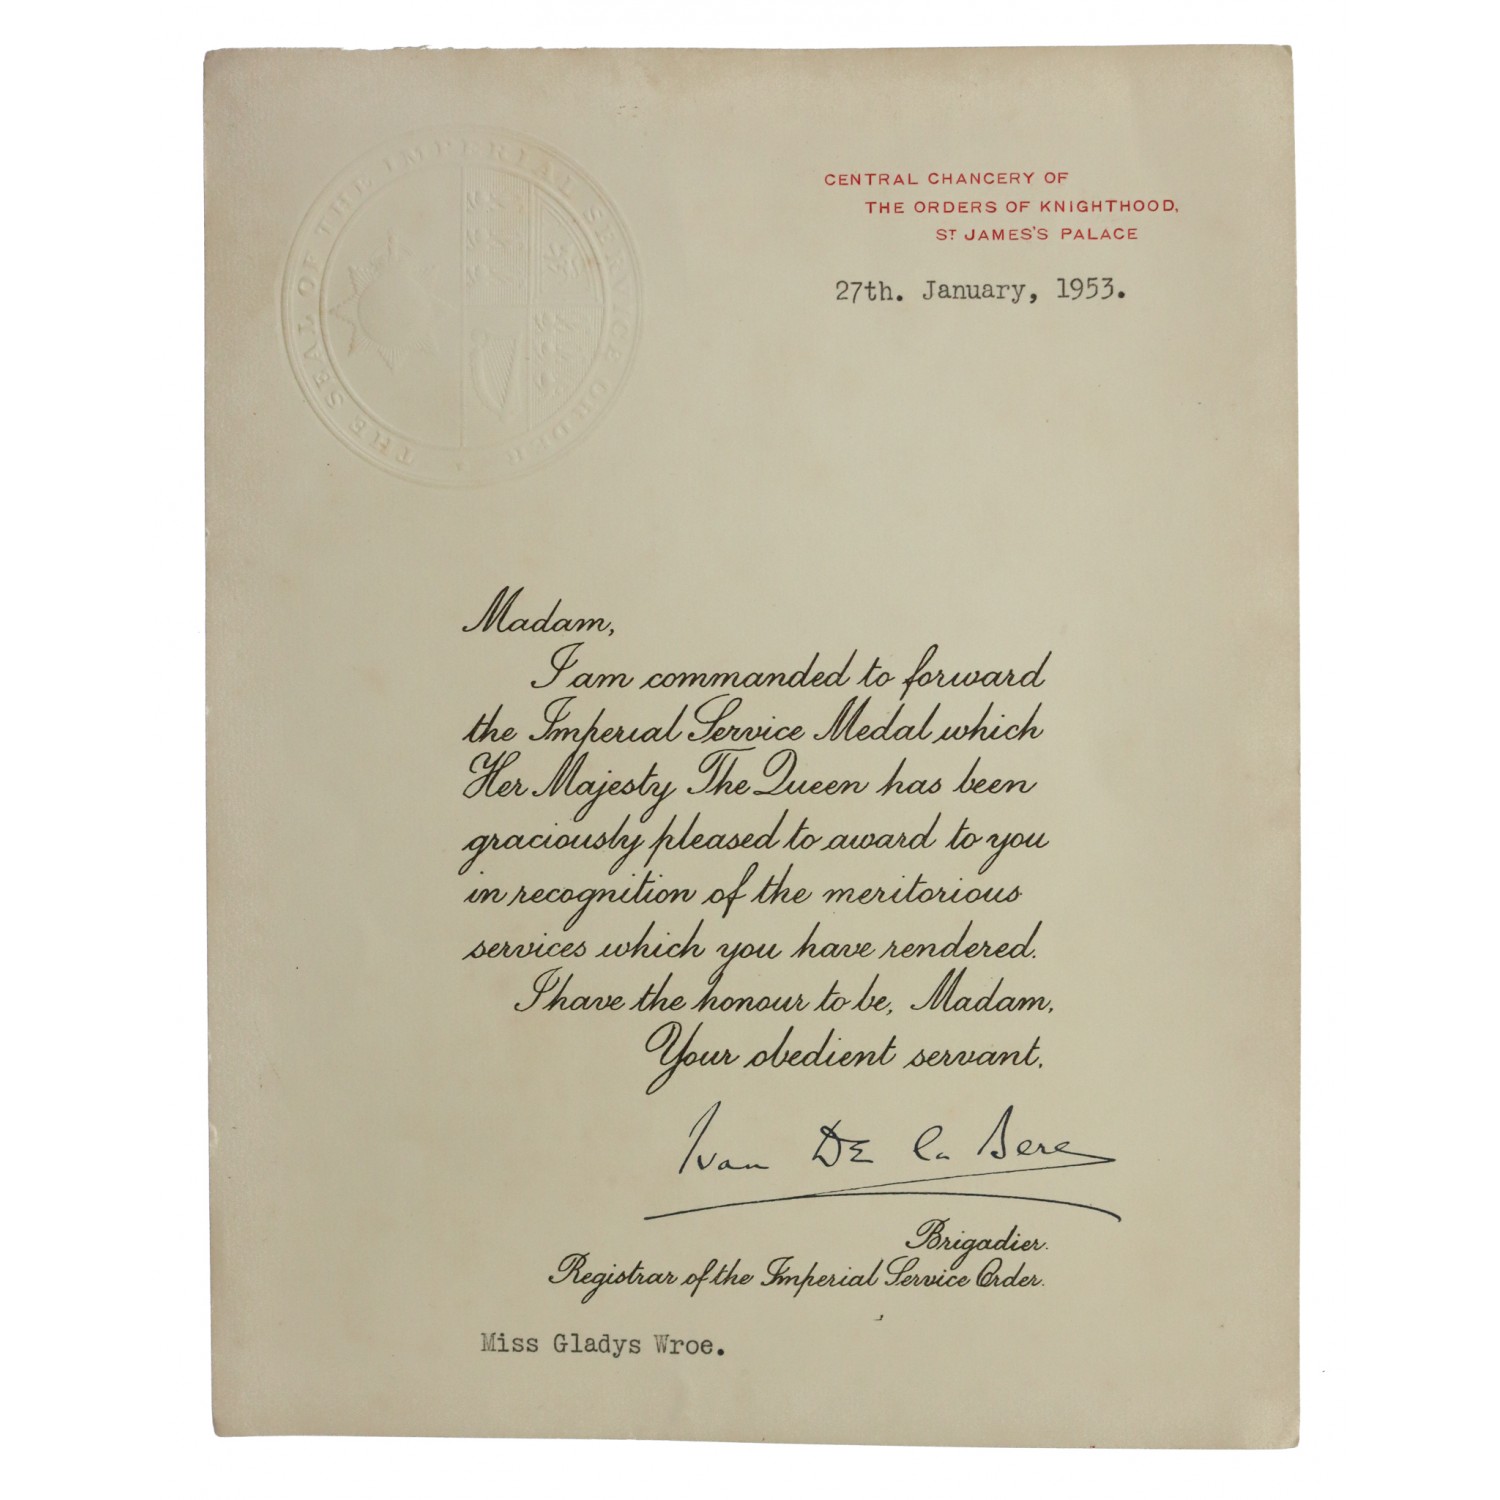 THE SEAL OF THE IMPERIAL SERVICE ORDER
CENTRAL CHANCERY OF
THE ORDERS OF KNIGHTHOOD,
ST JAMES'S PALACE
27th. January, 1953.
Madam,
I am commanded to forward
the Imperial Service Medal which
Her Majesty The Queen has been
graciously pleased to award to you
in recognition of the meritorious
services which you have rendered.
I have the honour to be, Madam,
Your obedient servant,
Ivan De la Bere
Brigadier.
Registrar of the Imperial Service Order.
Miss Gladys Wroe.